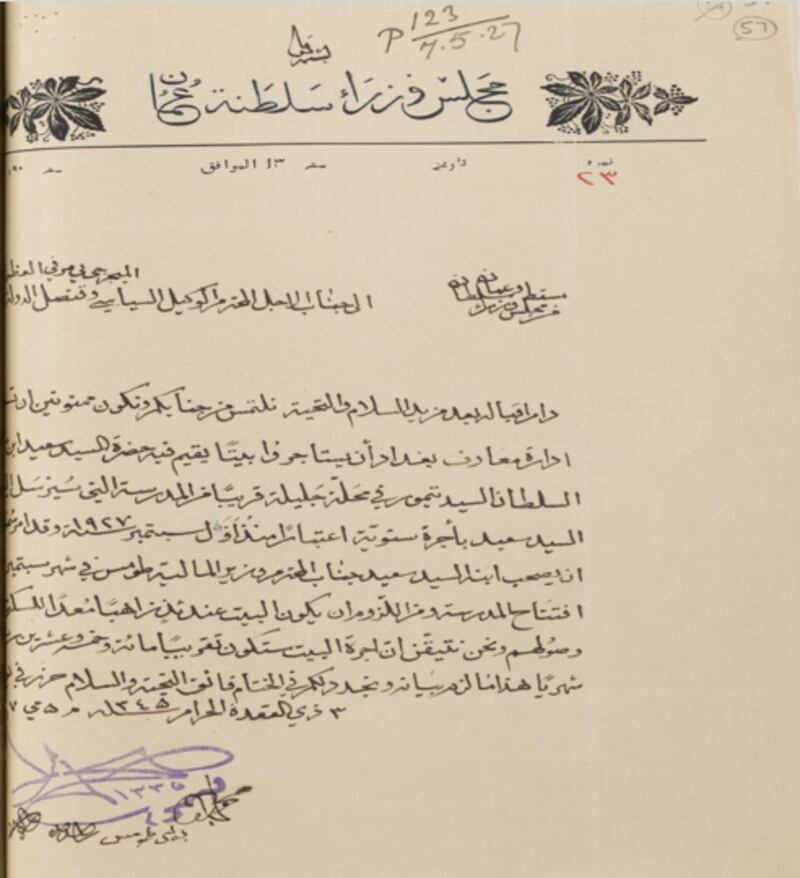 P 123
7.5.27
57
مجلس وزراء سلطنة عُمان
نمبره تاريخ سنه ١٣ الموافق سنه
٢٣
الميجر
مسقط وعمان
الى جناب الاجل المحترم الوكيل السياسي وقنصل الدولة
من مجلس وزراء
دام اقباله بعد مزيد السلام والتحية نلتمس من جنابكم ونكون ممنونين ان
ادارة معارف بغداد أن يستاجروا بيتًا يقيم فيه حضرة السيد سعيد ابن
السلطان السيد تيمور في محلّة جليلة قريبًا من المدرسة التي سيُرسَل
السيد سعيد بأجرة سنويّة اعتبارًا منذ أوّل سبتمبر ١٩٢٧ وقد امر
ان يصحب ابنه السيد سعيد جناب المحترم وزير المالية طومس في شهر سبتمبر
افتتاح المدرسة ومن اللزوم ان يكون البيت عندئذٍ مُعدًا للسكن
وصولهم ونحن نتيقّن ان اجرة البيت ستكون تقريبًا مائة وخمسة وعشرين
شهريًا هذا ما لزم بيانه ونجدد لكم في الختام فائق التحية والسلام حرر في
٣ ذي القعدة الحرام ١٣٤٥ م ٥ مي
١٣٣٥
طومس